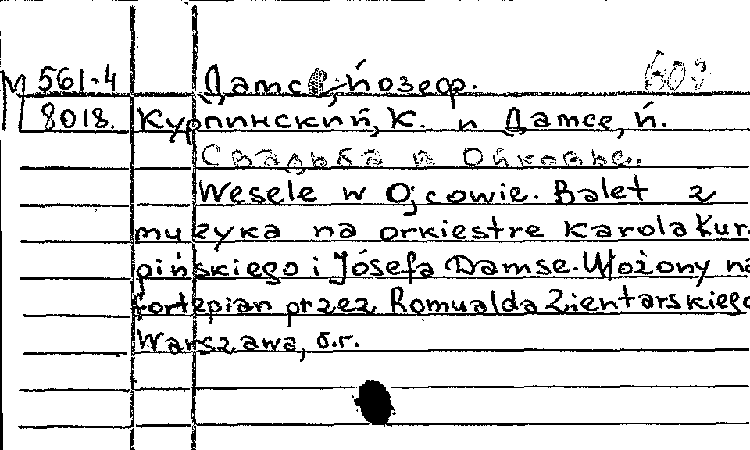 М 561-4 Дамсе, Йозеф. 603
8018. Курпинский, К. и Дамсе, Й.
Свадьба в Ойкове.
Wesele w Ojcowie. Balet z
muzyka na orkiestre Karola Kur-
pińskiego i Józefa Damse. Ułożony na
fortepian przez Romualda Zientarskiego
Warszawa, б.г.